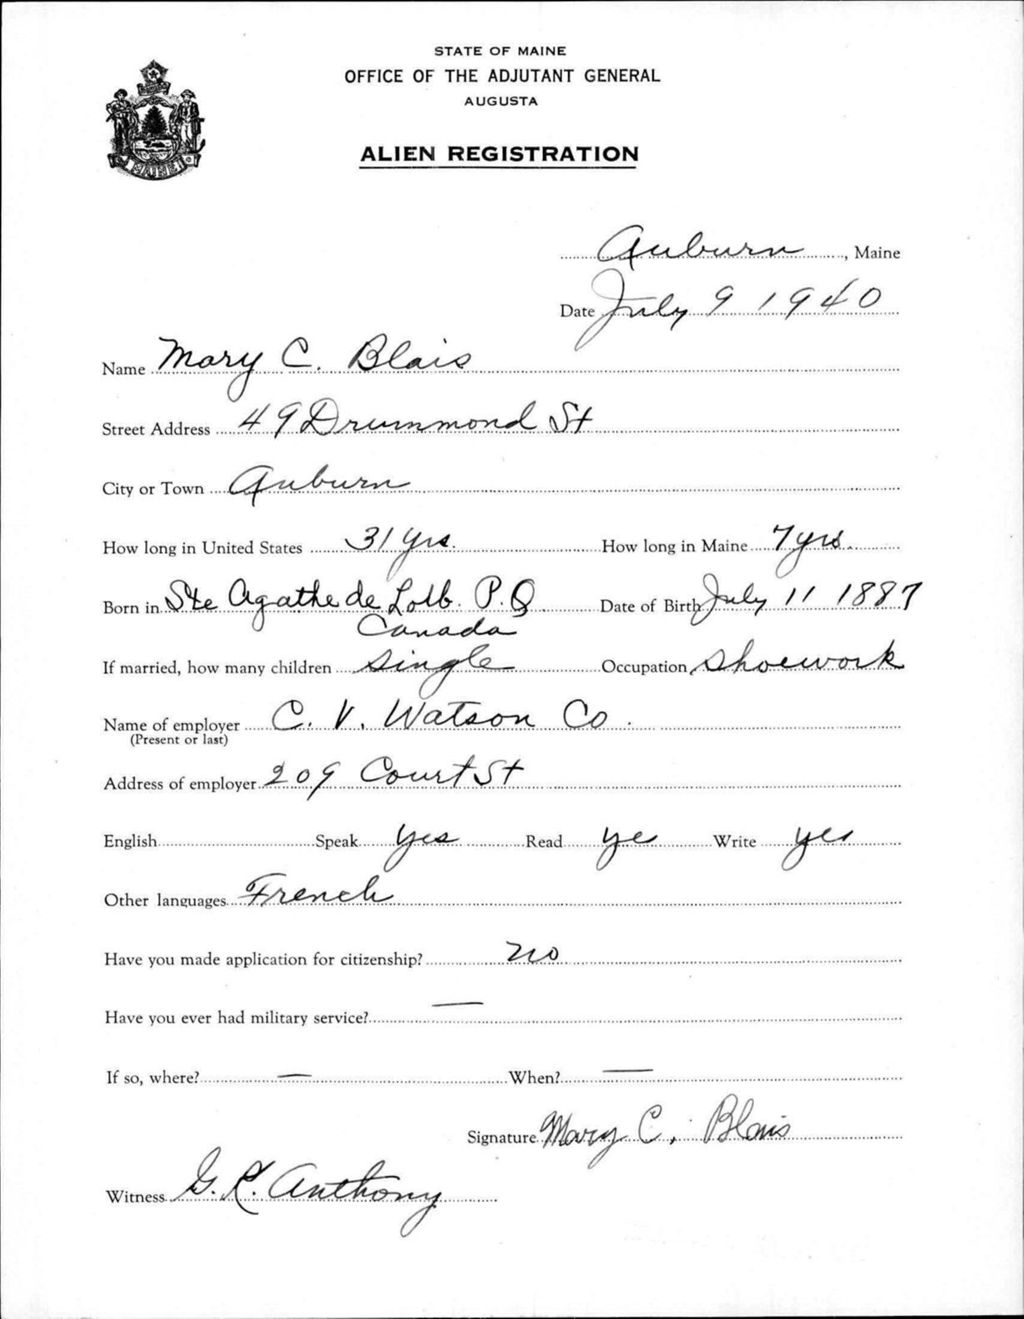 STATE OF MAINE
OFFICE OF THE ADJUTANT GENERAL
AUGUSTA
ALIEN REGISTRATION
MAINE
Auburn, Maine
Date July 9 1940
Name Mary C. Blais
Street Address 49 Drummond St
City or Town Auburn
How long in United States 31 yrs. How long in Maine 7 yrs.
Born in Ste Agathe de Lotb. P.Q Date of Birth July 11 1887
Canada
If married, how many children single Occupation Shoework
Name of employer C. V. Watson Co.
(Present or last)
Address of employer 209 Court St
English Speak yes Read yes Write yes
Other languages French
Have you made application for citizenship? no
Have you ever had military service? —
If so, where? — When? —
Signature Mary C. Blais
Witness G. R. Anthony